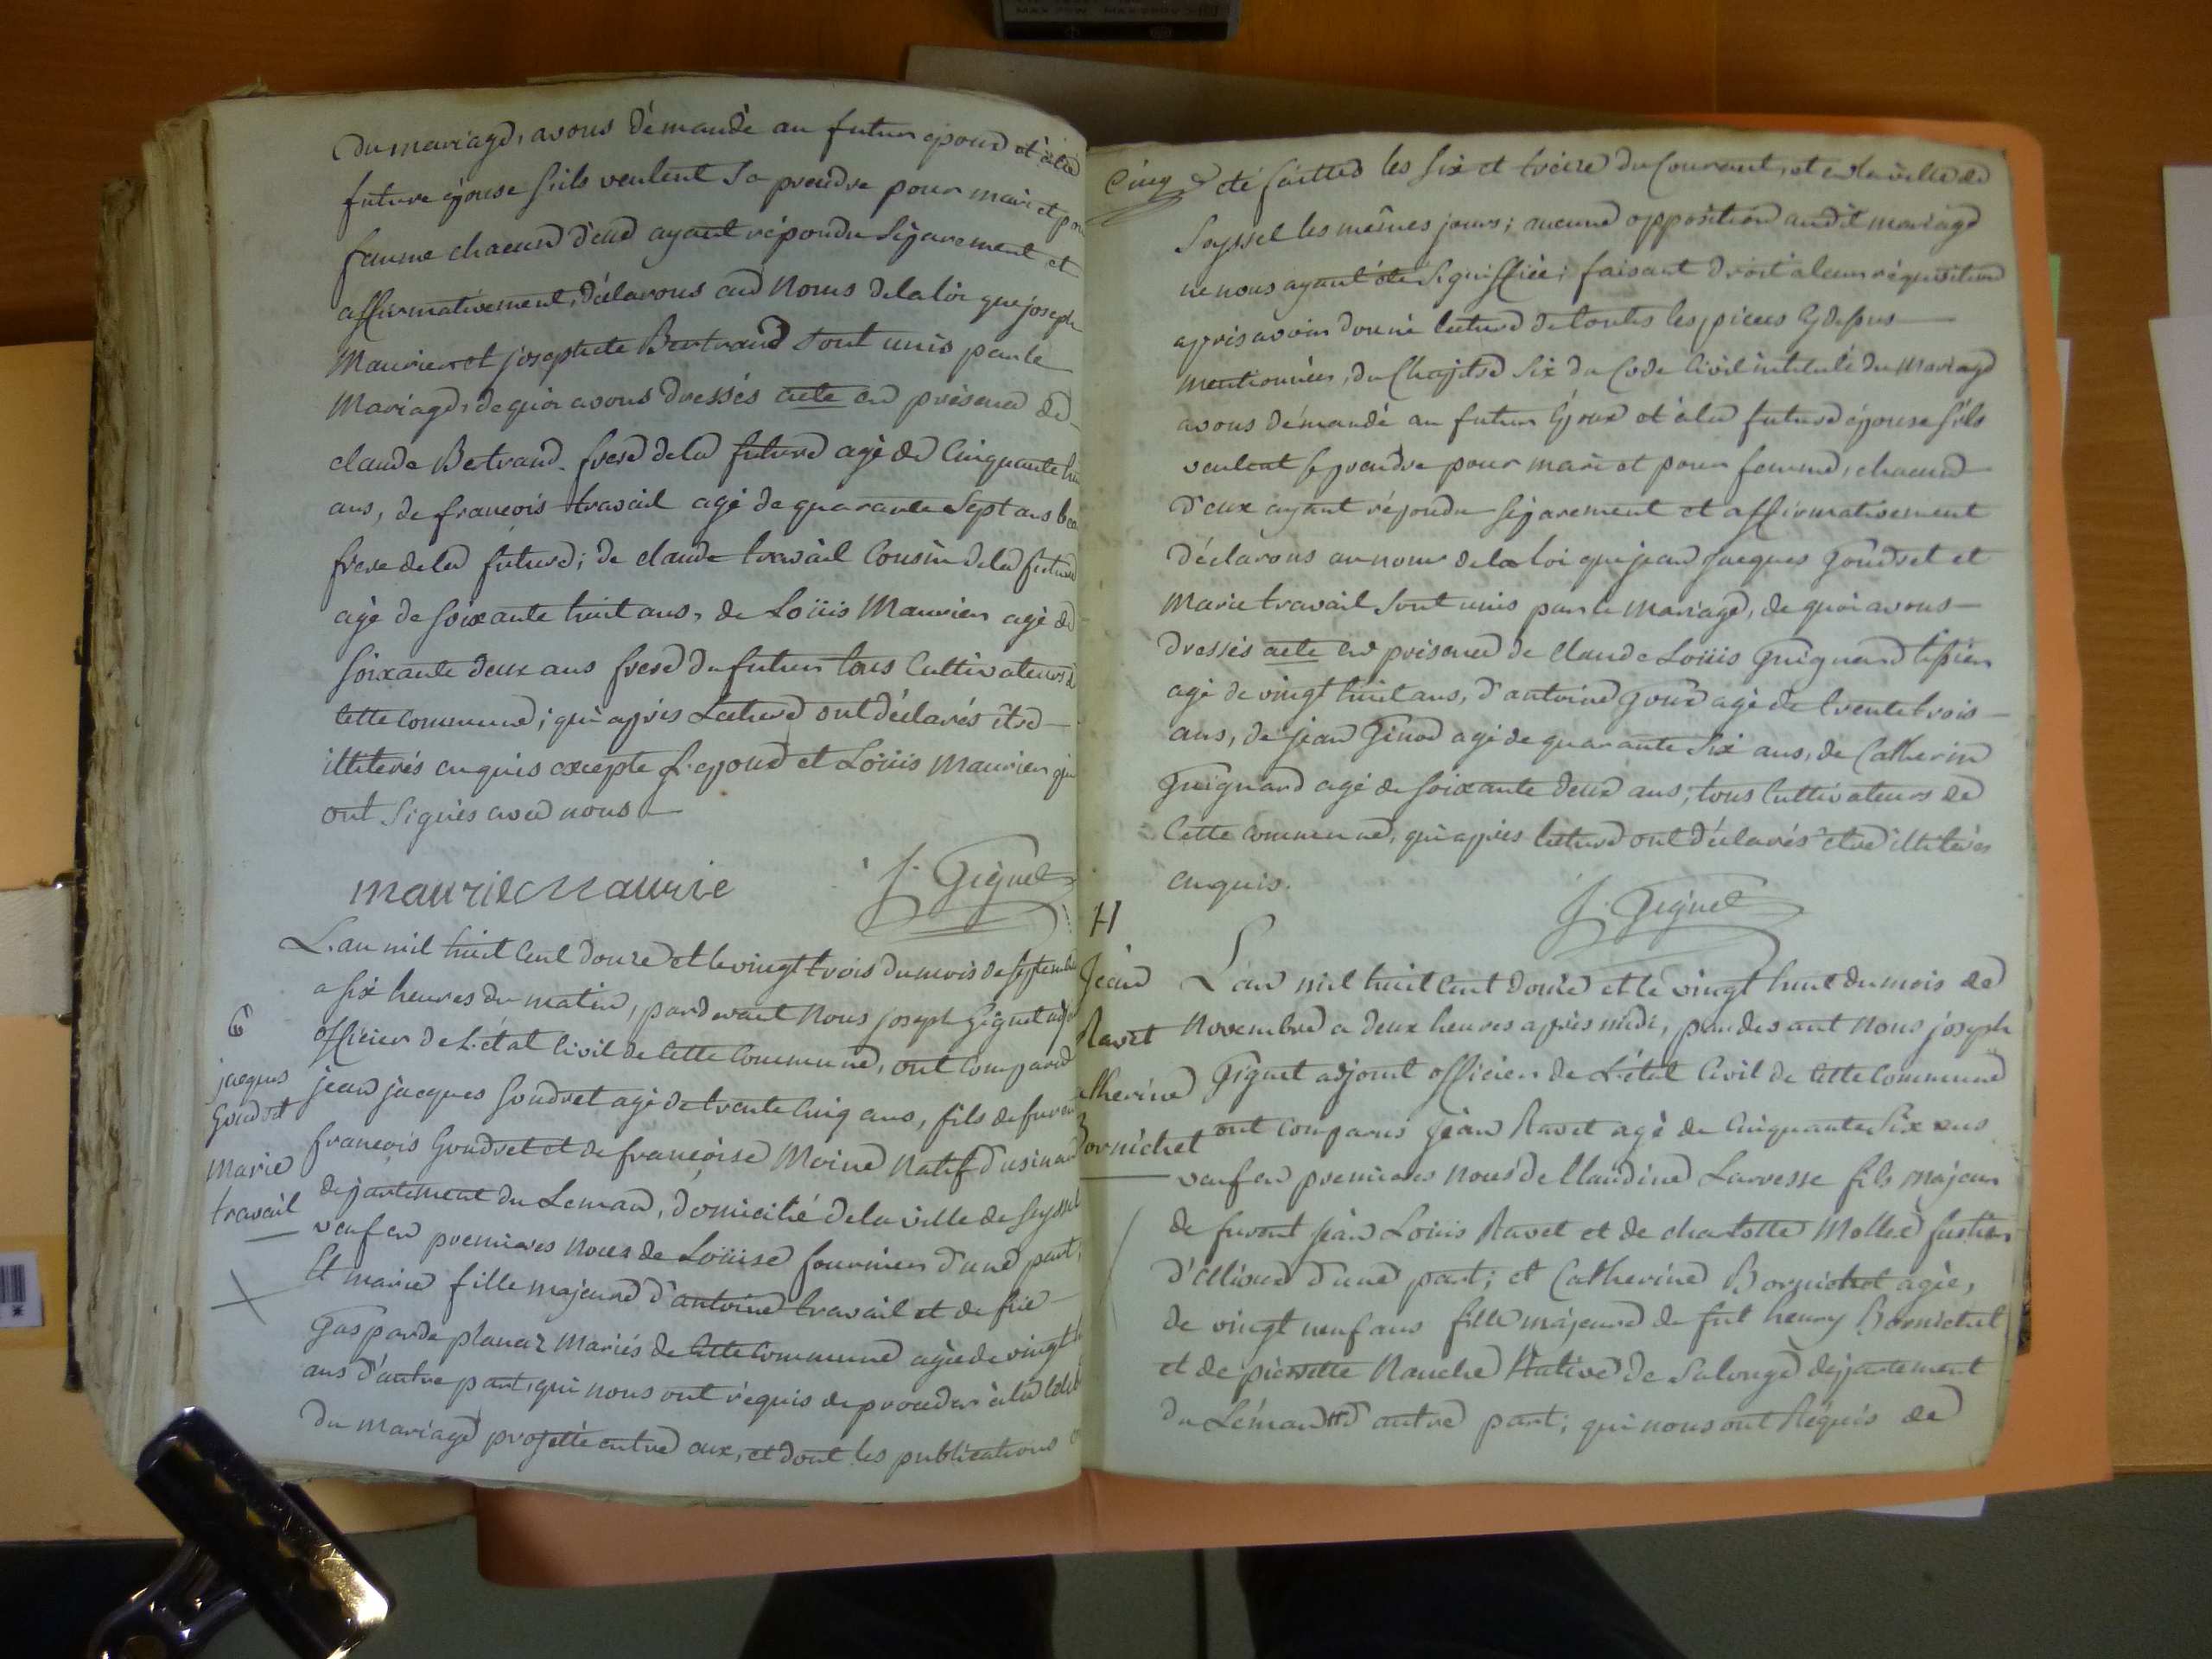 du mariage, avons demandé au futur epoux et à la
future épouse s'ils veulent se prendre pour mari et pour
femme chacun d'eux ayant répondu séparement et
affirmativement, déclarons au Noms de la loi que joseph
Maurier et josephete Bertrand sont unis par le
Mariage, de quoi avons dressés acte en présence de
claude Betrand frere de la future agé de Cinquante huit
ans, de francois travail agé de quarante sept ans beau
frere de la future; de claude travail Cousin de la future
agé de soixante huit ans, de Loüis Maurier agé de
soixante deux ans frere du futur tous Cultivateurs de
cette commune; qui après Lecture ont déclarés être
illiterés enquis excepte l'epoux et Loüis Maurier qui
ont signés avec nous
maurie Maurie
J. Gignet
L'an mil huit cent douze et le vingt trois du mois de septembre
a six heures du matin, pardevant Nous joseph Gignet adjt
officier de L'état Civil de Cette Commune, ont comparu
6
jacques
Goudret
Marie
travail
jean jacques Goudret agé de trente cinq ans, fils de furent
francois Goudret et de francoise Moine Natif d'usinens
departement du Leman, domicilié de la ville de Seyssel
veuf en premieres noces de Loüise fournier d'une part,
Et marie fille majeure d'antoine travail et de feue
Gasparde planaz Mariés de Cette Commune agée de vingt
ans d'autre part, qui nous ont requis de proceder à la celeb
du mariage projetté entre eux, et dont les publications
Cinq
été faittes les six et treize du Courant, et en la ville de
Seyssel les mêmes jours; aucune opposition audit mariage
ne nous ayant été Signiffiée; faisant droit a leur réquisition
apris avoir donné lecture de toutes les pieces Cydessus
mentionnées, du Chapitre Six du Code Civil intitulé du Mariage
avons démandé au futur Epoux et à la future épouse s'ils
veulent se prendre pour mari et pour femme, chacun
d'eux ayant répondu séparement et affirmativement
déclarons au nom de la loi que jean Jacques Goudret et
Marie travail sont unis par le mariage, de quoi avons
dressés acte en présence de Claude Loüis Guignard
agé de vingt huit ans, d'antoine Goux agé de trente trois
ans, de jean Ginod agé de quarante Six ans, de Catherin
Guignard agé de soixante deux ans, tous Cultivateurs de
Cette commune, qui après lecture ont déclarés etre illiterés
enquis.
J. Gignet
H
Jean
Ravet
atherine
Bornichet
L'an mil huit cent douze et le vingt huit du mois de
Novembre a deux heures après midi, pardevant nous joseph
Gignet adjoint officier de L'état Civil de Cette Commune
ont comparus jean Ravet agé de Cinquante Six ans
veuf en premieres noces de Claudine Larvesse fils majeur
de furent jean Loüis Ravet et de charlotte Mollex
d'une part; et Catherine Bornichet agée,
de vingt neuf ans fille majeure de fut henry Bornichet
et de pierrette Nanche Native de Salonge département
du Léman d'autre part; qui nous ont Réquis de